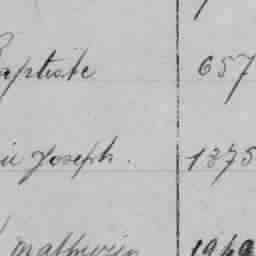 aptiste 657
ie Joseph. 1375
Mathurin